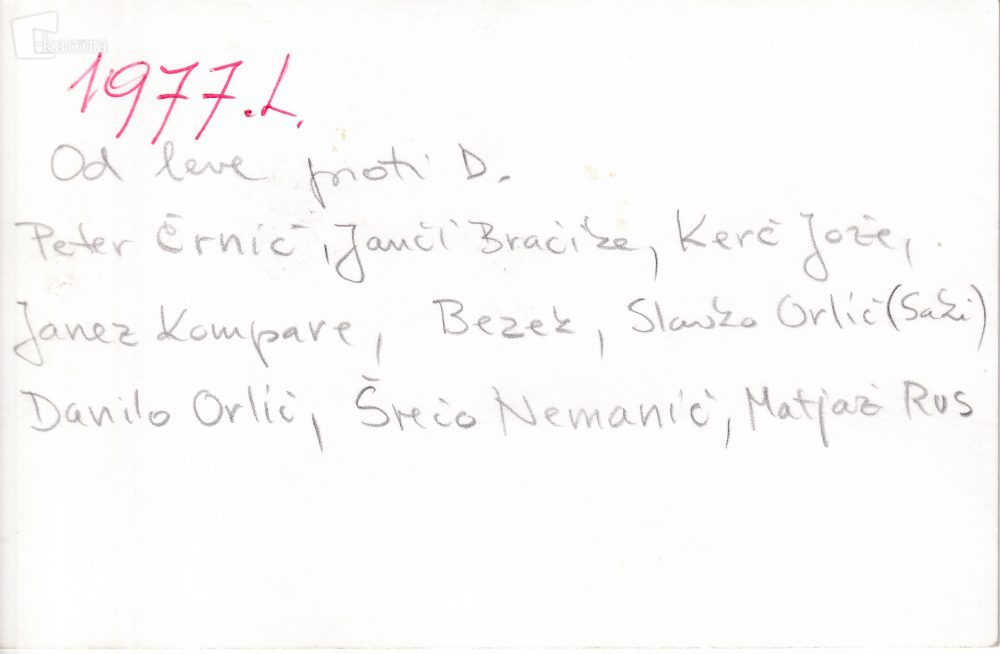 kamra
1977.L.
Od leve proti D.
Peter Črnič, Janči Bračike, Kerč Jože,
Janez Kompare, Bezek, Slavko Orlič (Saki)
Danilo Orlič, Šrečo Nemanič, Matjaž Rus